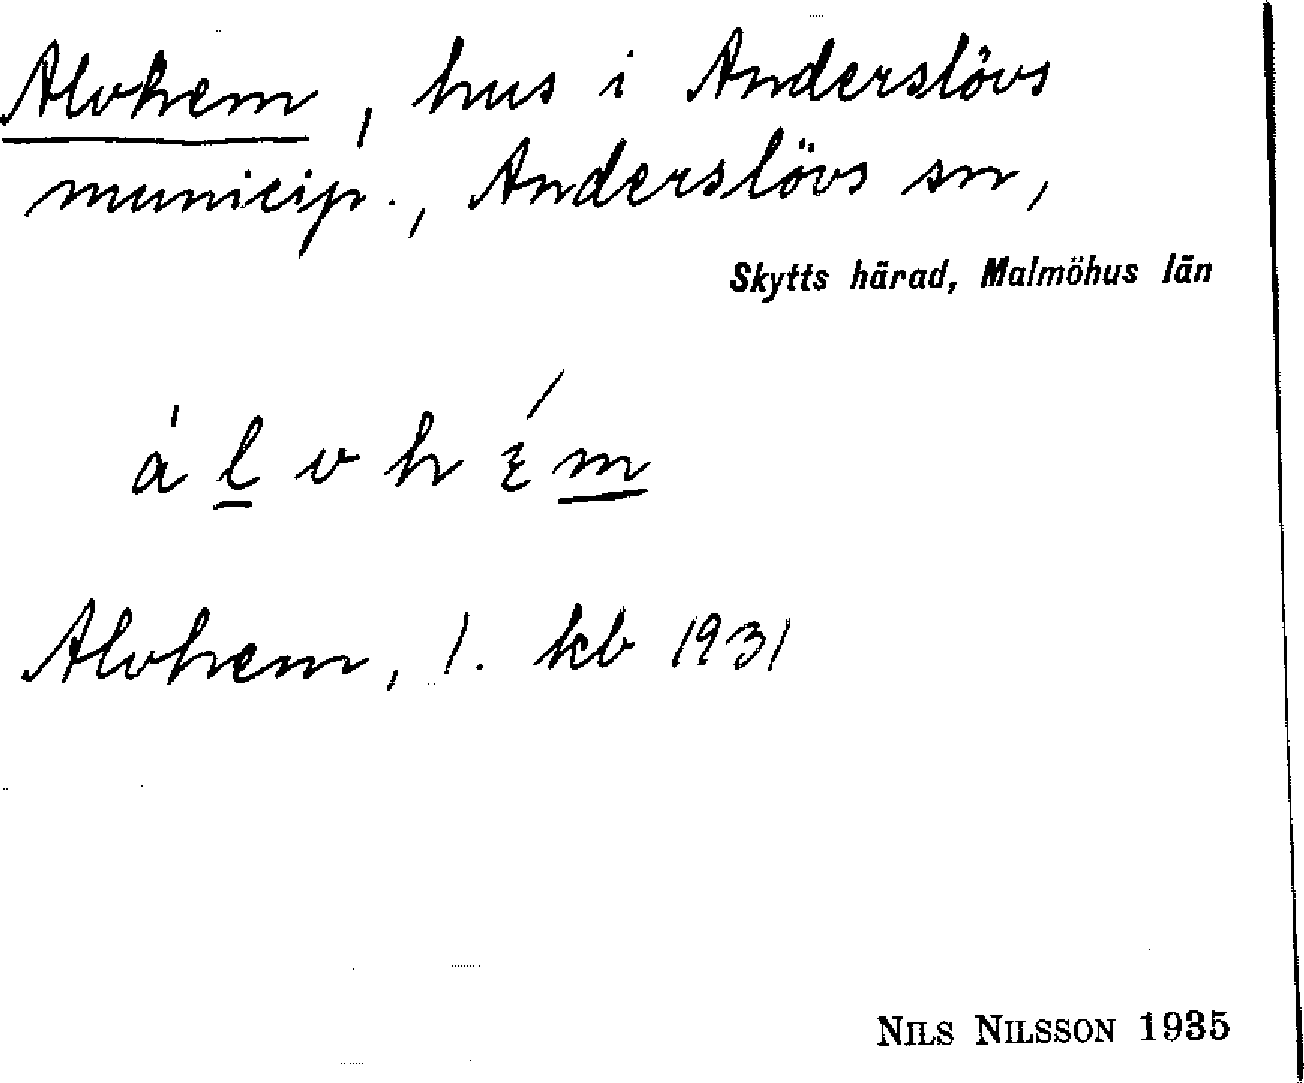 Alvhem, hus i Anderslövs
municip., Anderslövs sn,
Skytts härad, Malmöhus län
a̍l̲vhɛ́m̲
Alvhem, l. kb 1931
NILS NILSSON 1935